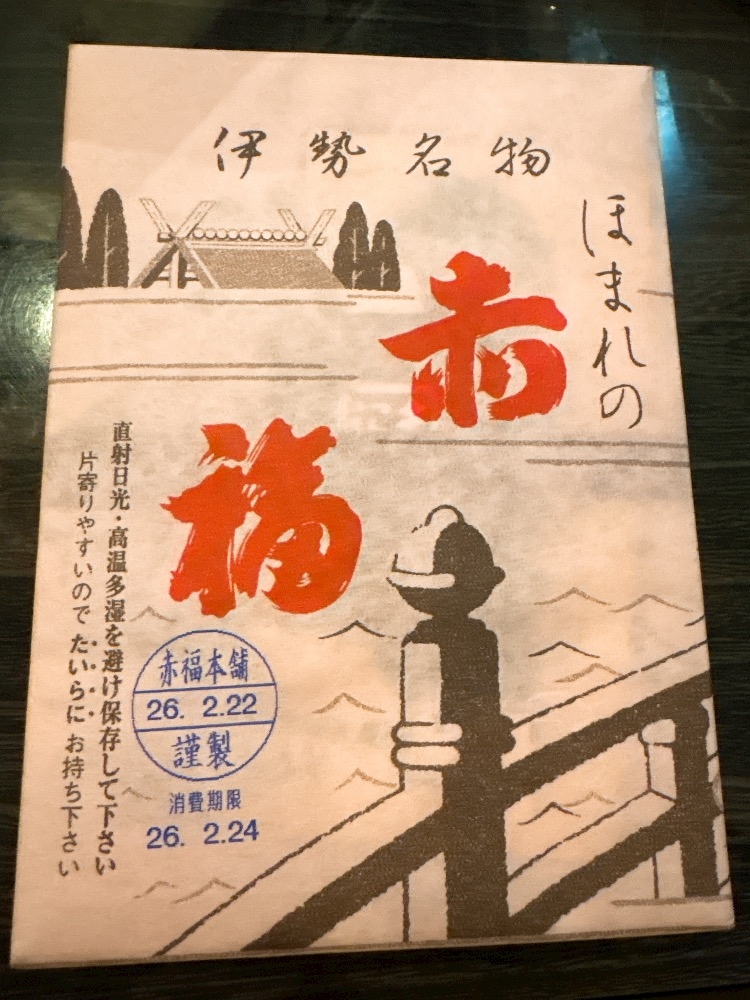 伊勢名物
ほまれの
赤
福
直射日光・高温多湿を避け保存して下さい
片寄りやすいので たいらに お持ち下さい
赤福本舗
26. 2.22
謹製
消費期限
26. 2.24